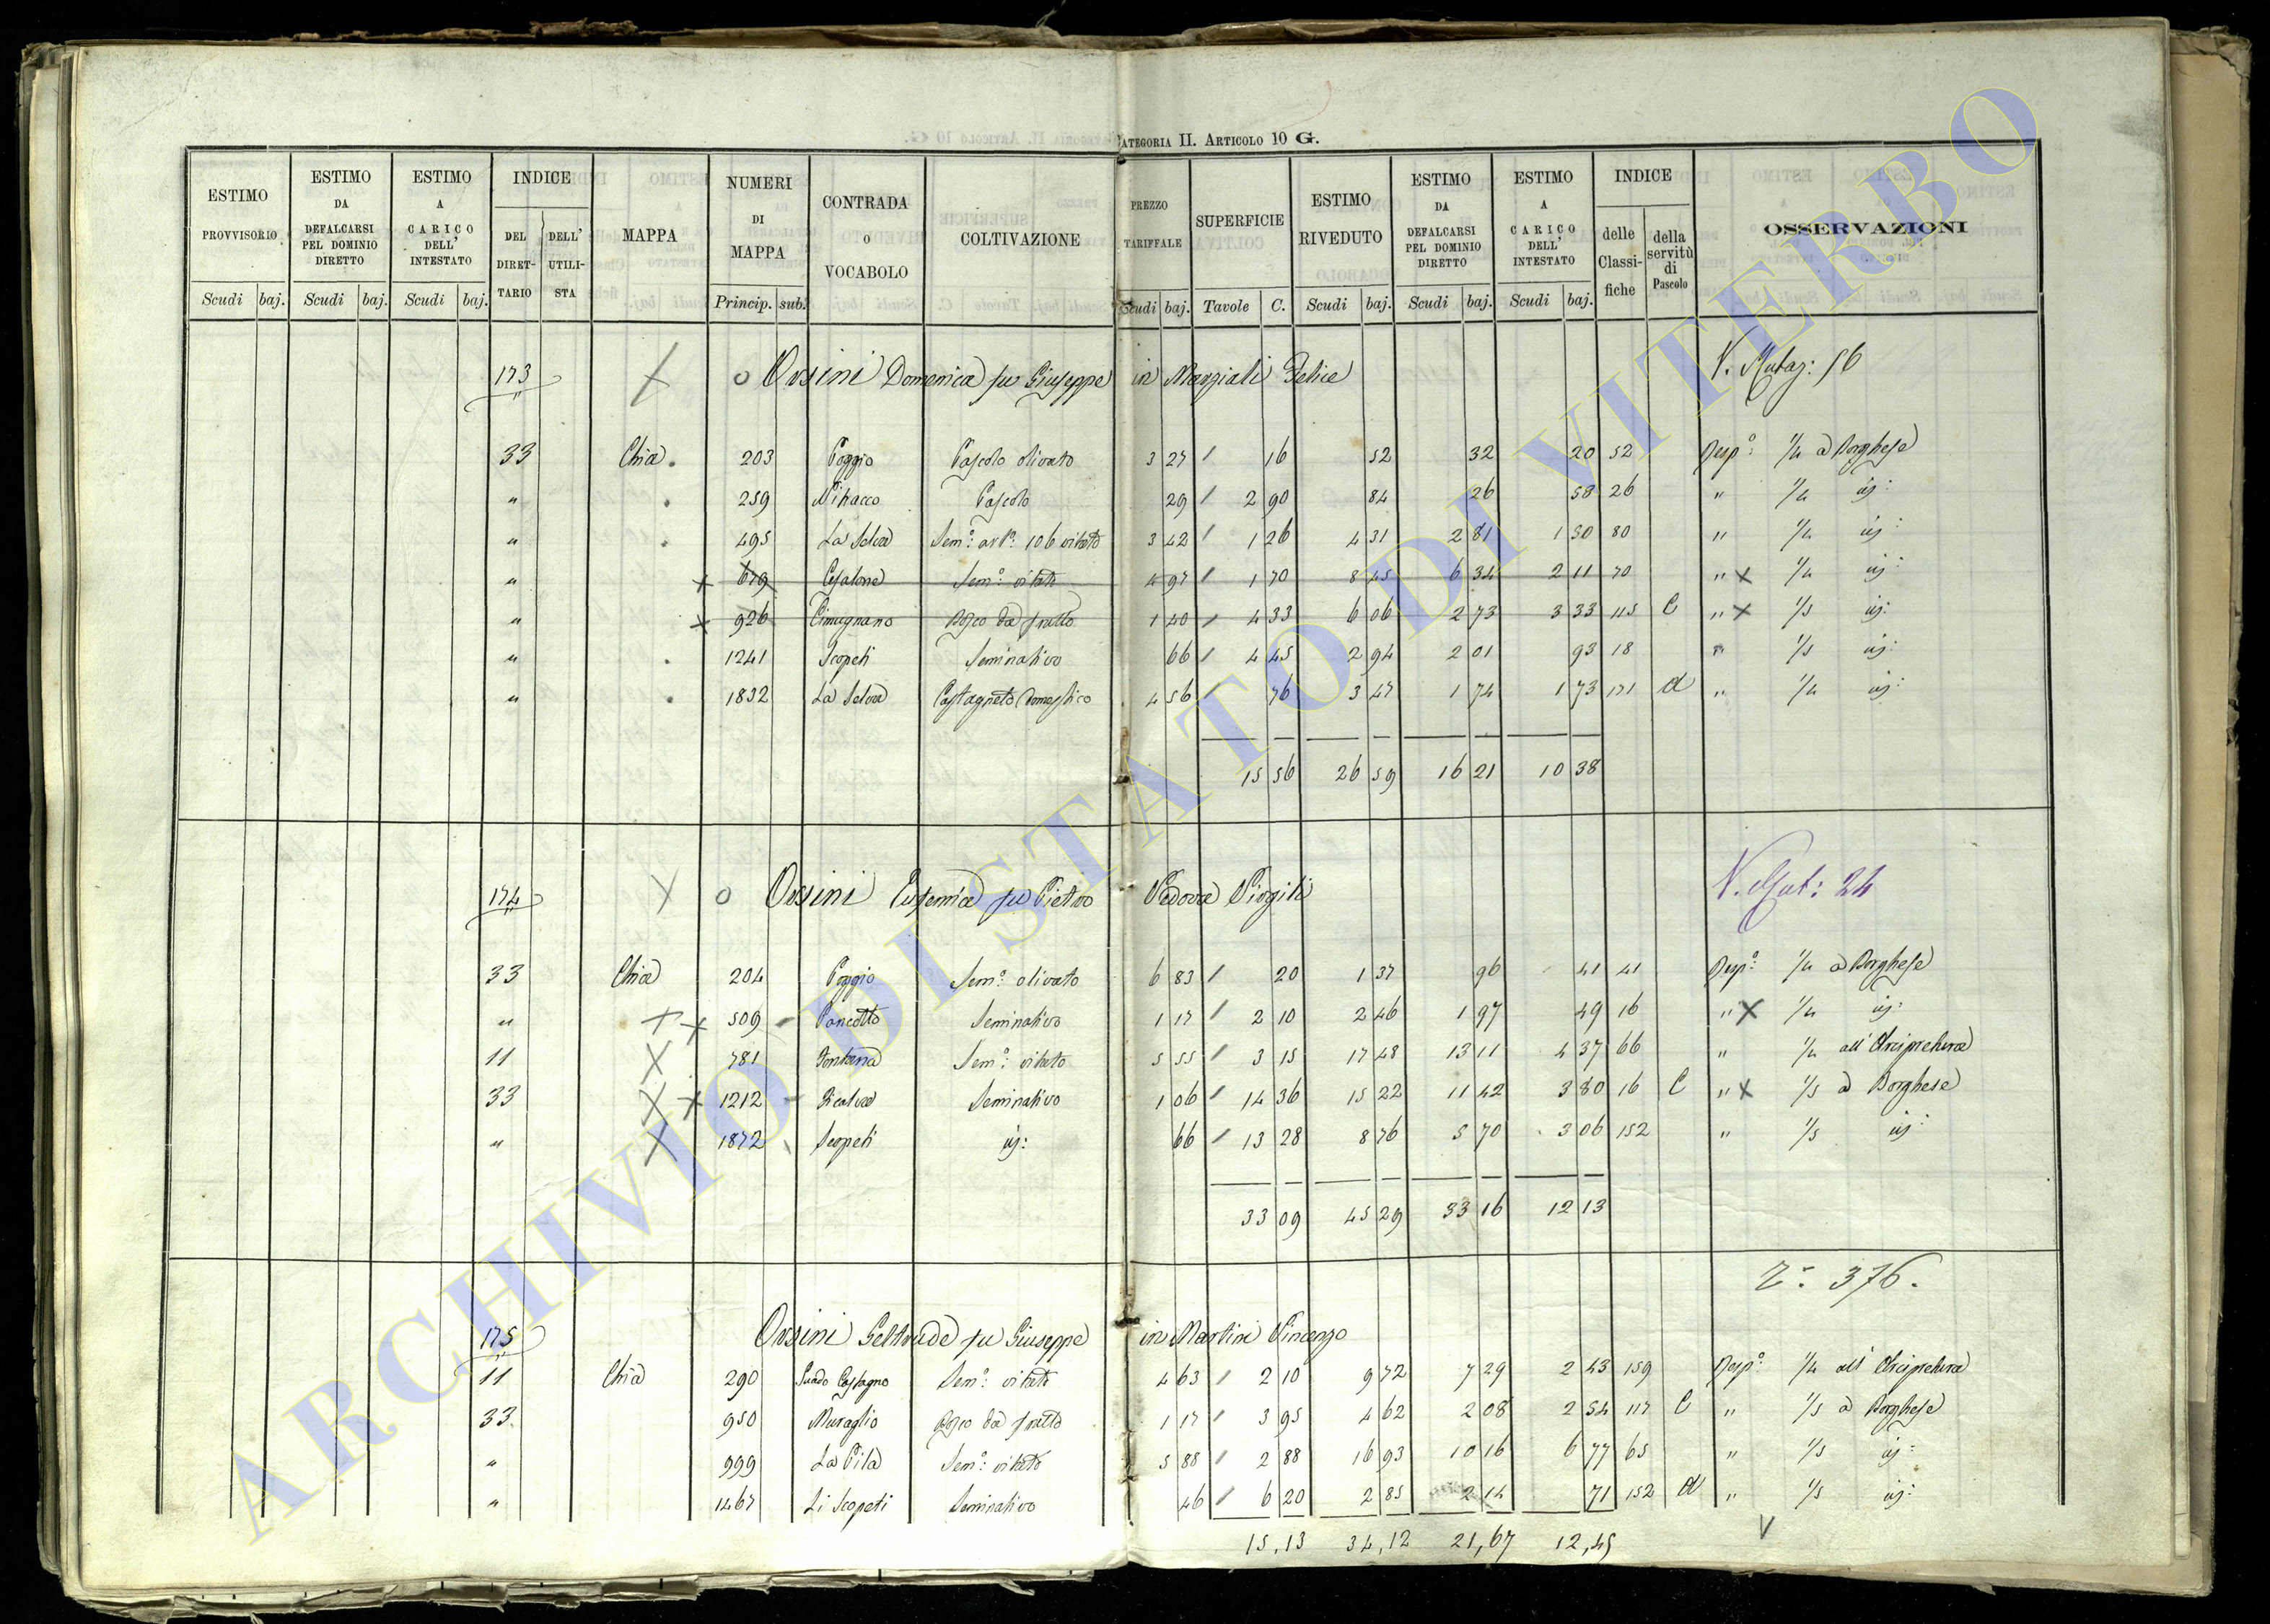 CATEGORIA II. ARTICOLO 10 G.
ESTIMO PROVVISORIO Scudi baj. ESTIMO DA DEFALCARSI PEL DOMINIO DIRETTO Scudi baj. ESTIMO A CARICO DELL' INTESTATO Scudi baj. INDICE DEL DIRET-TARIO DELL' UTILI-STA MAPPA NUMERI DI MAPPA Princip. sub. CONTRADA O VOCABOLO COLTIVAZIONE PREZZO TARIFFALE Scudi baj. SUPERFICIE Tavole C. ESTIMO RIVEDUTO Scudi baj. ESTIMO DA DEFALCARSI PEL DOMINIO DIRETTO Scudi baj. ESTIMO A CARICO DELL' INTESTATO Scudi baj. INDICE delle Classi-fiche della servitù di Pascolo OSSERVAZIONI
173 Orsini Domenica fu Giuseppe in Marziali Felice V. Mutaz: 56
33 Chia 203 Poggio Pascolo olivato 3 27 16 52 32 20 52 Resp: 1/4 a Borghese
" 259 Pascolo 29 2 90 84 26 58 26 " 1/4
" 495 La Selva 3 42 1 26 4 31 2 81 1 50 80 " 1/4
" 679 Sem: vitato 4 97 1 70 8 45 6 34 2 11 70 " 1/4
" 926 Cimugnano Bosco da frutto 1 40 4 33 6 06 2 73 3 33 115 C " 1/5
" 1241 Scopeti Seminativo 66 4 45 2 94 2 01 93 18 " 1/5
" 1832 La Selva Castagneto domestico 4 56 76 3 47 1 74 1 73 171 d " 1/4
15 56 26 59 16 21 10 38
174 Orsini Eufemia fu Pietro Vedova Virgili V. Mut: 24
33 Chia 204 Poggio Sem: olivato 6 83 20 1 37 96 41 41 Resp: 1/4 a Borghese
" 509 Panedotto Seminativo 1 17 2 10 2 46 1 97 49 16 " 1/4
11 781 Fontana Sem: vitato 5 55 3 15 17 48 13 11 4 37 66 " 1/4 all' Arcipretura
33 1212 Seminativo 1 06 14 36 15 22 11 42 3 80 16 C " 1/5 a Borghese
" 1872 Scopeti 66 13 28 8 76 5 70 3 06 152 " 1/5
33 09 45 29 33 16 12 13
376.
175 Orsini Geltrude fu Giuseppe in Martini Vincenzo
11 Chia 290 Guado Castagno Sem: vitato 4 63 2 10 9 72 7 29 2 43 159 Resp: 1/4 all' Arcipretura
33 950 Muraglio Bosco da frutto 1 17 3 95 4 62 2 08 2 54 117 C " 1/5 a Borghese
" 999 La Pila Sem: vitato 5 88 2 88 16 93 10 16 6 77 65 " 1/5
" 1467 Li Scopeti Seminativo 46 6 20 2 85 2 14 71 152 d " 1/5
15,13 34,12 21,67 12,45
ARCHIVIO DI STATO DI VITERBO